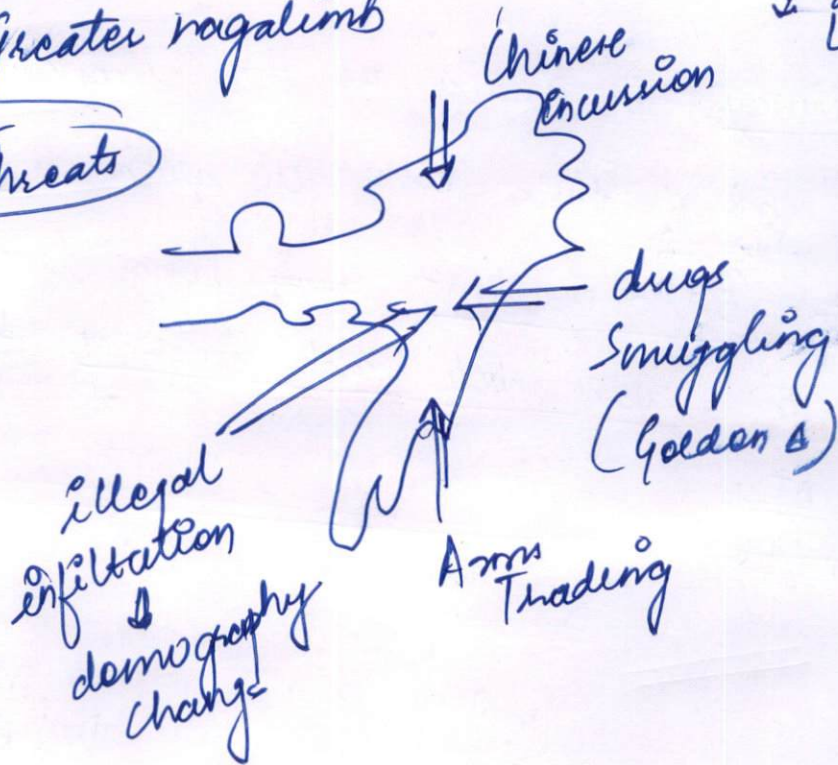 reater nagalimb
Chinese
incussion
hreats
drugs
Smuggling
(Goldon Δ)
illegal
infiltration
⇓
demography
change
Arms
Trading